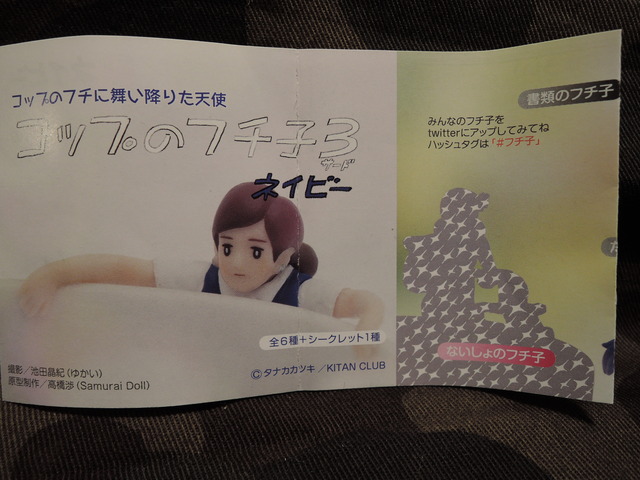 コップのフチに舞い降りた天使
コップのフチ子3
サード
ネイビー
全6種+シークレット1種
撮影/池田晶紀(ゆかい)
原型制作/高橋渉(Samurai Doll)
©タナカカツキ/KITAN CLUB
書類のフチ子
みんなのフチ子を
twitterにアップしてみてね
ハッシュタグは「#フチ子」
た
ないしょのフチ子